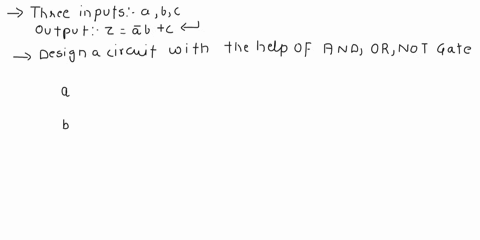 → Three inputs:- a, b, c
Output:- z = āb + c ↵
→ Design a circuit with the help OF AND, OR, NOT Gate
a
b